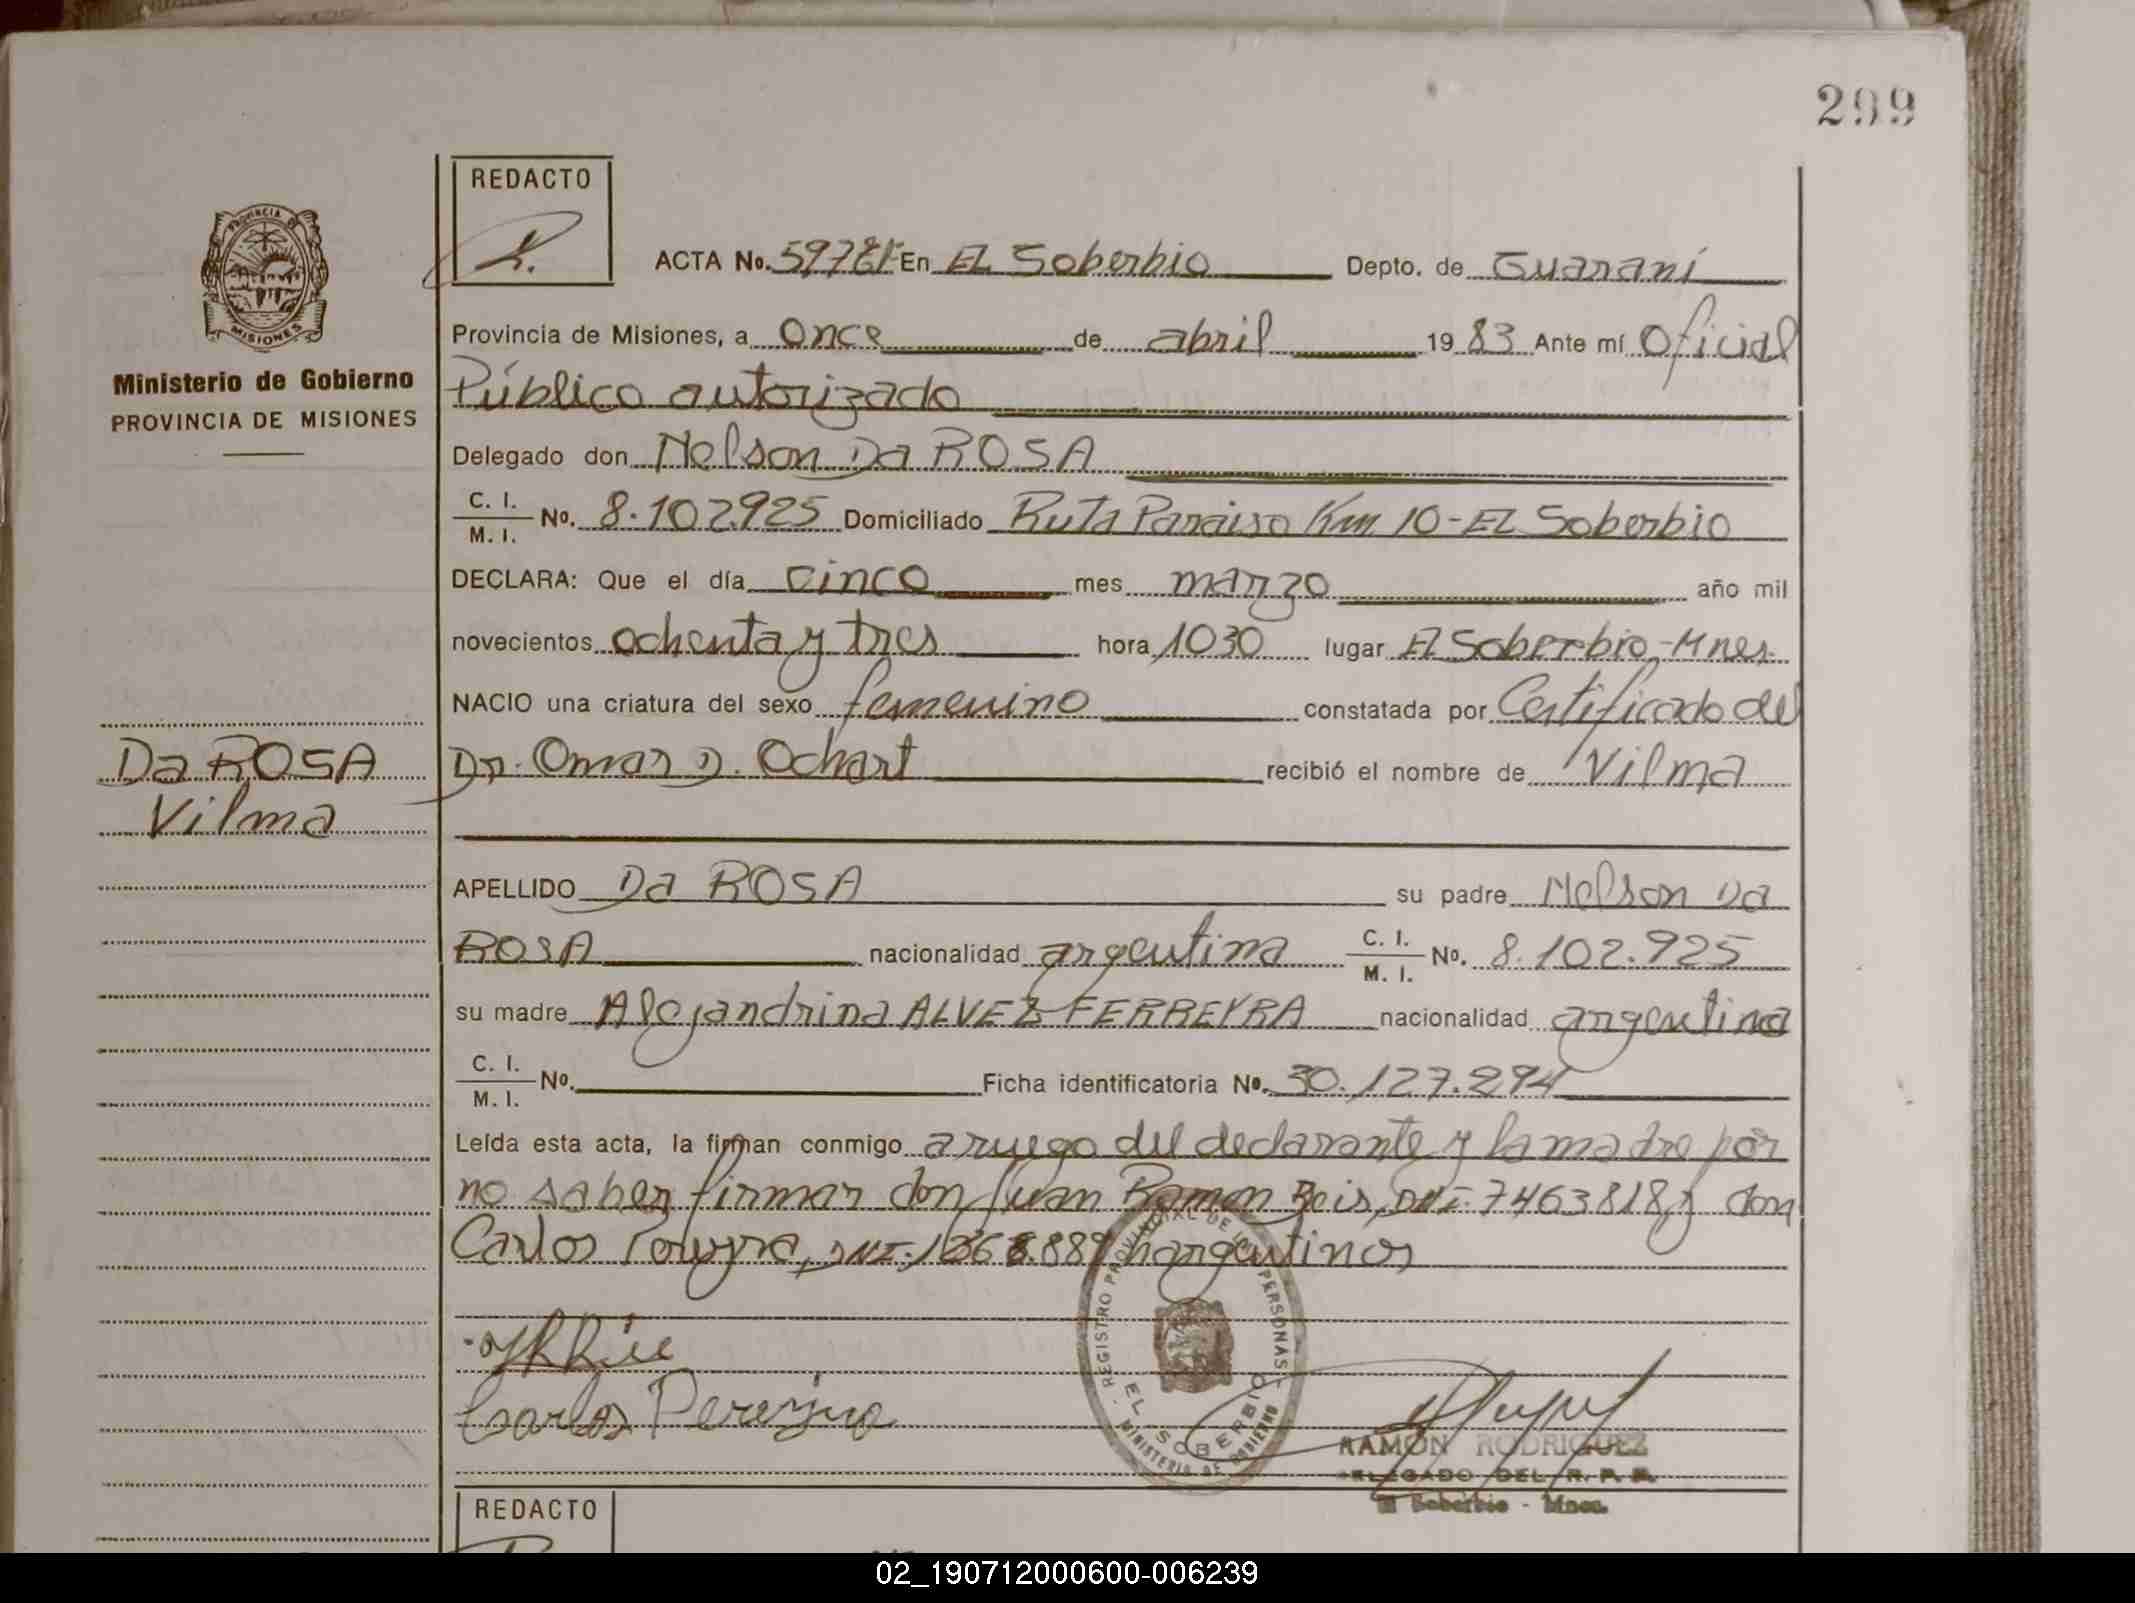 299
REDACTO
ACTA No. En El Soberbio Depto. de Guaraní
Provincia de Misiones, a once de abril 1983 Ante mí Oficial
Público autorizado
Ministerio de Gobierno
PROVINCIA DE MISIONES
Delegado don Nelson Da ROSA
C. I.
M. I. No. 8.102.925 Domiciliado Ruta Paraiso Km 10 - EL Soberbio
DECLARA: Que el día cinco mes marzo año mil
novecientos ochenta y tres hora 1030 lugar El Soberbio - Mnes.
NACIO una criatura del sexo femenino constatada por Certificado del
Dr. Omar D. Ochart recibió el nombre de Vilma
Da ROSA
Vilma
APELLIDO Da ROSA su padre Nelson Da
ROSA nacionalidad argentina C. I.
M. I. No. 8.102.925
su madre Alejandrina ALVEZ FERREYRA nacionalidad argentina
C. I.
M. I. No. Ficha identificatoria No. 30.127.294
Leída esta acta, la firman conmigo a ruego del declarante y la madre por
no saber firmar don Juan Ramon DNI. 7463818 y don
Carlos DNI. argentinos
Carlos Pereyra
REGISTRO PROVINCIAL DE LAS PERSONAS
EL SOBERBIO
MINISTERIO DE GOBIERNO
RAMON RODRIGUEZ
DELEGADO DEL R. P. P.
El Soberbio - Mnes.
REDACTO
02_190712000600-006239